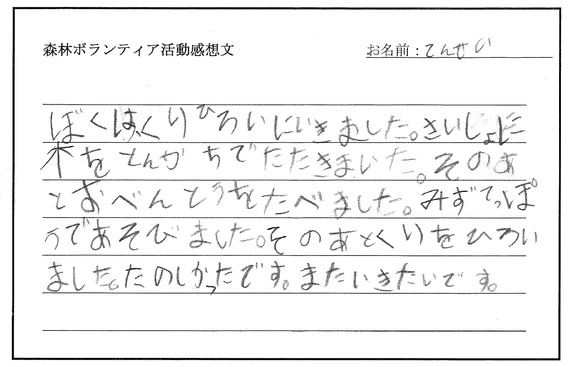 森林ボランティア活動感想文
お名前：てんせい
ぼくはくりひろいにいきました。さいしょに
木をとんかちでたたきまいた。そのあ
とおべんとうをたべました。みずてっぽ
うであそびました。そのあとくりをひろい
ました。たのしかったです。またいきたいです。